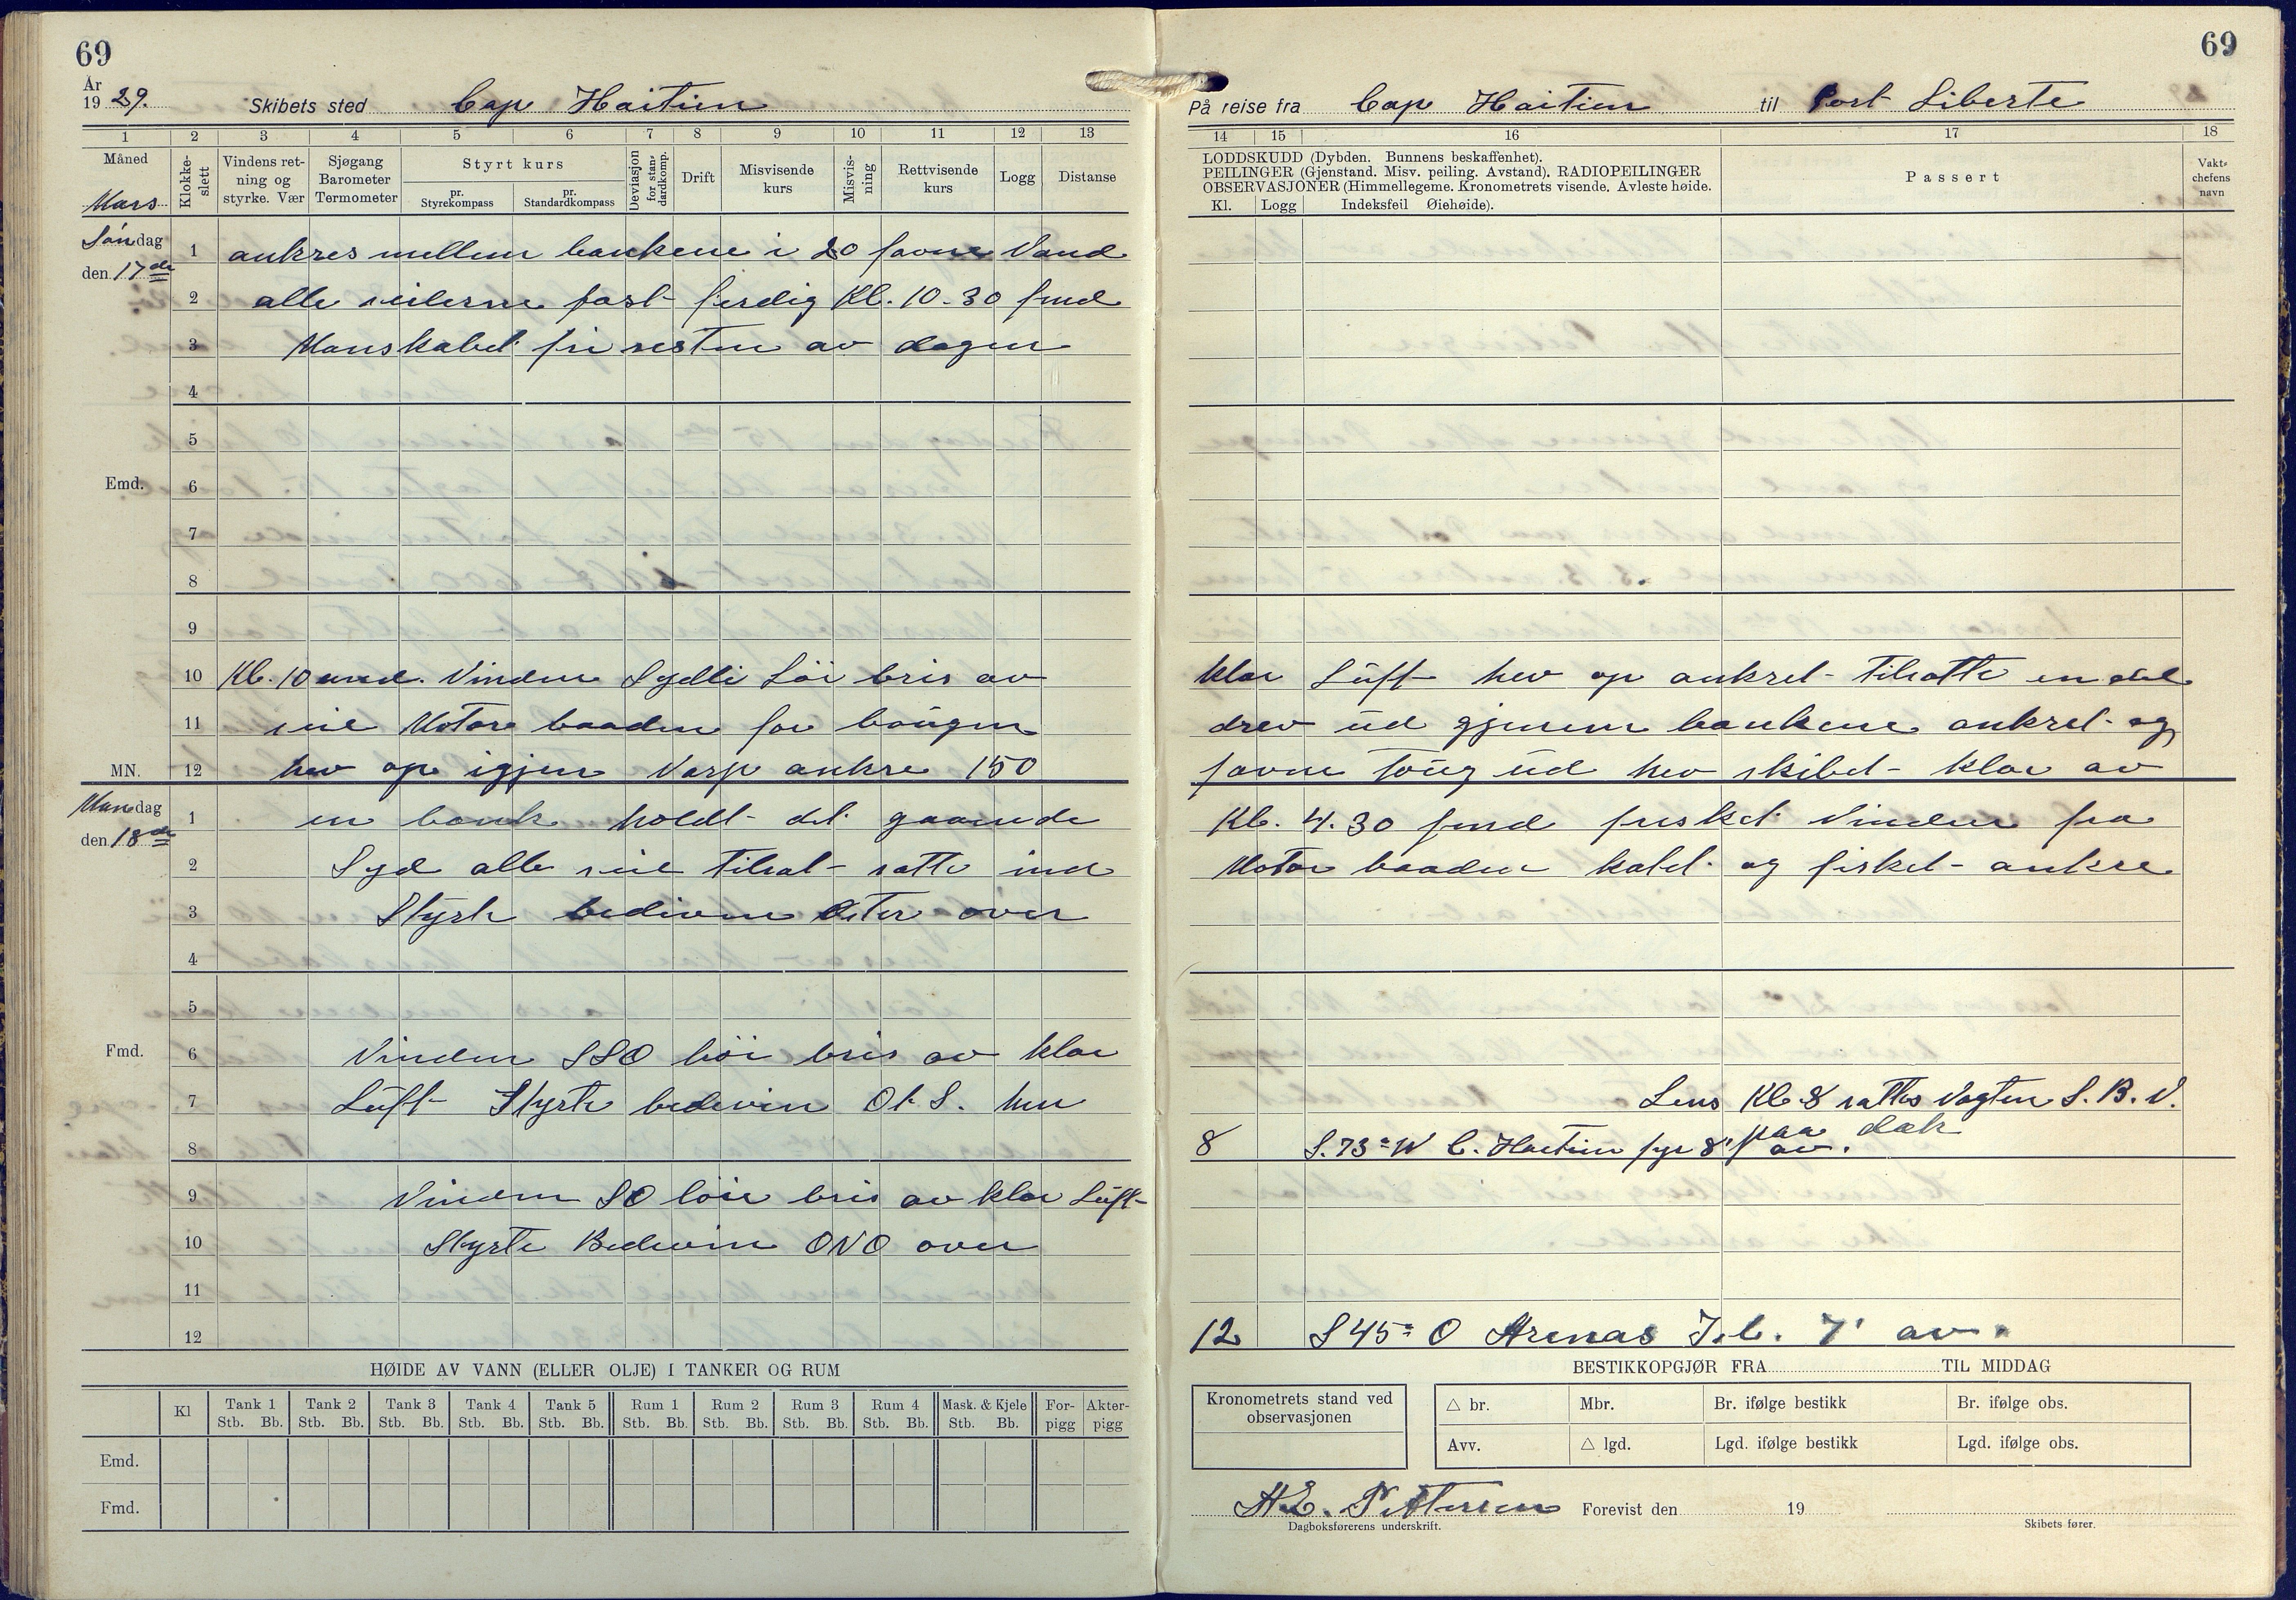 69
År
1929. Skibets sted Cap Haitien
1 2 3 4 5 6 7 8 9 10 11 12 13
Måned
Mars
Klokke-slett
Vindens ret-
ning og
styrke. Vær
Sjøgang
Barometer
Termometer
Styrt kurs
pr.
Styrekompass
pr.
Standardkompass
Deviasjon
for stan-
dardkomp.
Drift
Misvisende
kurs
Misvis-
ning
Rettvisende
kurs
Logg
Distanse
Søndag
den 17de
1 ankres mellem bankene i 20 favne Vand
2 alle seilerne fast ferdig Kl. 10-30 fmd
3 Manskabet fri resten av dagen
4
5
Emd. 6
7
8
9
10 Kl. 10 emd. Vinden Sydli Löi bris av
11 seil Motor baaden for baugen
MN. 12 hev op igjen Varp ankre 150
Mandag
den 18de
1 en bank holdt det gaaende
2 Syd alle seil tilsat satte ind
3 Styrte bedivin Öster over
4
5
Fmd. 6 Vinden SSO löi bris av klar
7 Luft Styrte bedivin Ot S. hen
8
9 Vinden SO löie bris av klar Luft
10 Styrte Bedivin ONO over
11
12
HØIDE AV VANN (ELLER OLJE) I TANKER OG RUM
Kl Tank 1 Tank 2 Tank 3 Tank 4 Tank 5 Rum 1 Rum 2 Rum 3 Rum 4 Mask. & Kjele For-pigg Akter-pigg
Stb. Bb. Stb. Bb. Stb. Bb. Stb. Bb. Stb. Bb. Stb. Bb. Stb. Bb. Stb. Bb. Stb. Bb. Stb. Bb.
Emd.
Fmd.
69
På reise fra Cap Haitien til Port Liberte
14 15 16 17 18
LODDSKUDD (Dybden. Bunnens beskaffenhet).
PEILINGER (Gjenstand. Misv. peiling. Avstand). RADIOPEILINGER
OBSERVASJONER (Himmellegeme. Kronometrets visende. Avleste høide.
Kl. Logg Indeksfeil Øiehøide).
Passert
Vakt-
chefens
navn
klar Luft hev op ankret tilsatte en del
drev ud gjenem bankene ankret og
favne toug ud hev skibet klar av
Kl. 4.30 fmd frisket Vinden fra
Motor baaden katet og fisket ankre
Lens Kl 8 sattes Vagten S. B. V.
paa dæk
8 S. 73° W C. Haitien fyr 8' av.
12 S 45° O Arenas Isl. 7' av.
BESTIKKOPGJØR FRA TIL MIDDAG
Kronometrets stand ved
observasjonen
△ br. Mbr. Br. ifølge bestikk Br. ifølge obs.
Avv. △ lgd. Lgd. ifølge bestikk Lgd. ifølge obs.
H.E. Pettersen Forevist den 19
Dagboksførerens underskrift. Skibets fører.